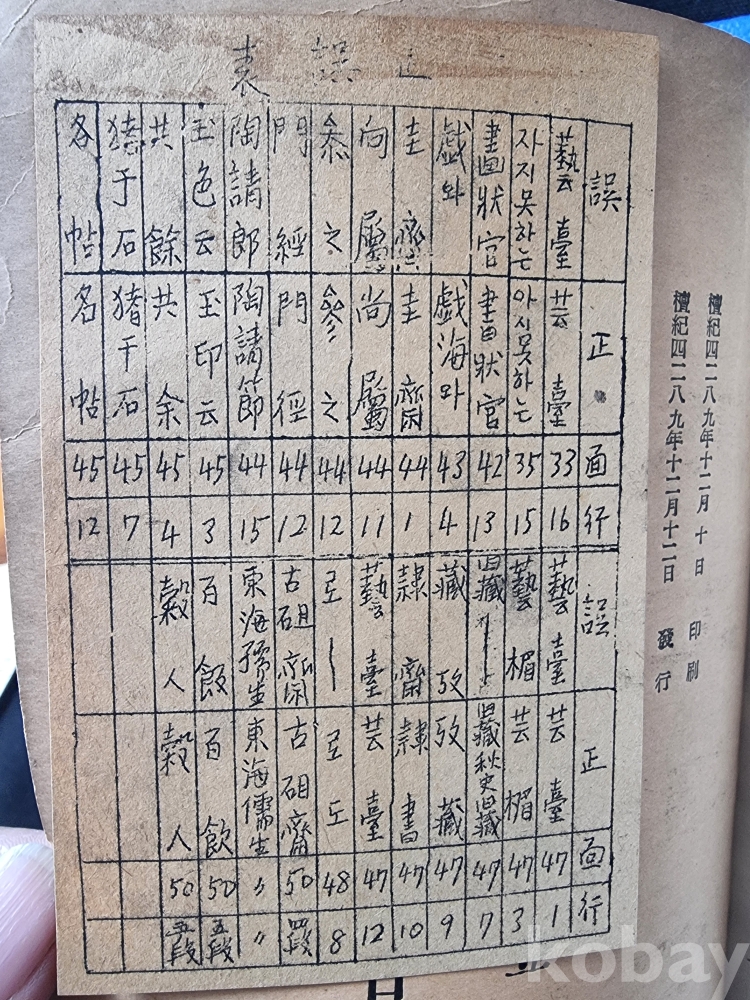 正誤表
誤 正 面 行
藝臺 芸臺 33 16
자지못하는 아시못하는 35 15
畵狀官 書狀官 42 13
戱와 戱海와 43 4
圭齋 圭齋 44 1
向屬 尚屬 44 11
叅之 參之 44 12
門經 門徑 44 12
陶請郎 陶請節 44 15
玉色云 玉印云 45 3
共餘 共余 45 4
猪于石 猪干石 45 7
各帖 名帖 45 12
誤 正 面 行
藝臺 芸臺 47 1
藝楣 芸楣 47 3
旧藏 旧藏秋史旧藏 47 7
藏攷 攷藏 47 9
隷齋 隷書 47 10
藝臺 芸臺 47 12
로ㅣ 로도 48 8
古硯齋 古硯齋 50 四段
東海孺生 東海儒生 〃 〃
百飯 百飮 50 五段
穀人 穀人 50 五段
檀紀四二八九年十二月 十 日 印刷
檀紀四二八九年十二月十二日 發行
kobay